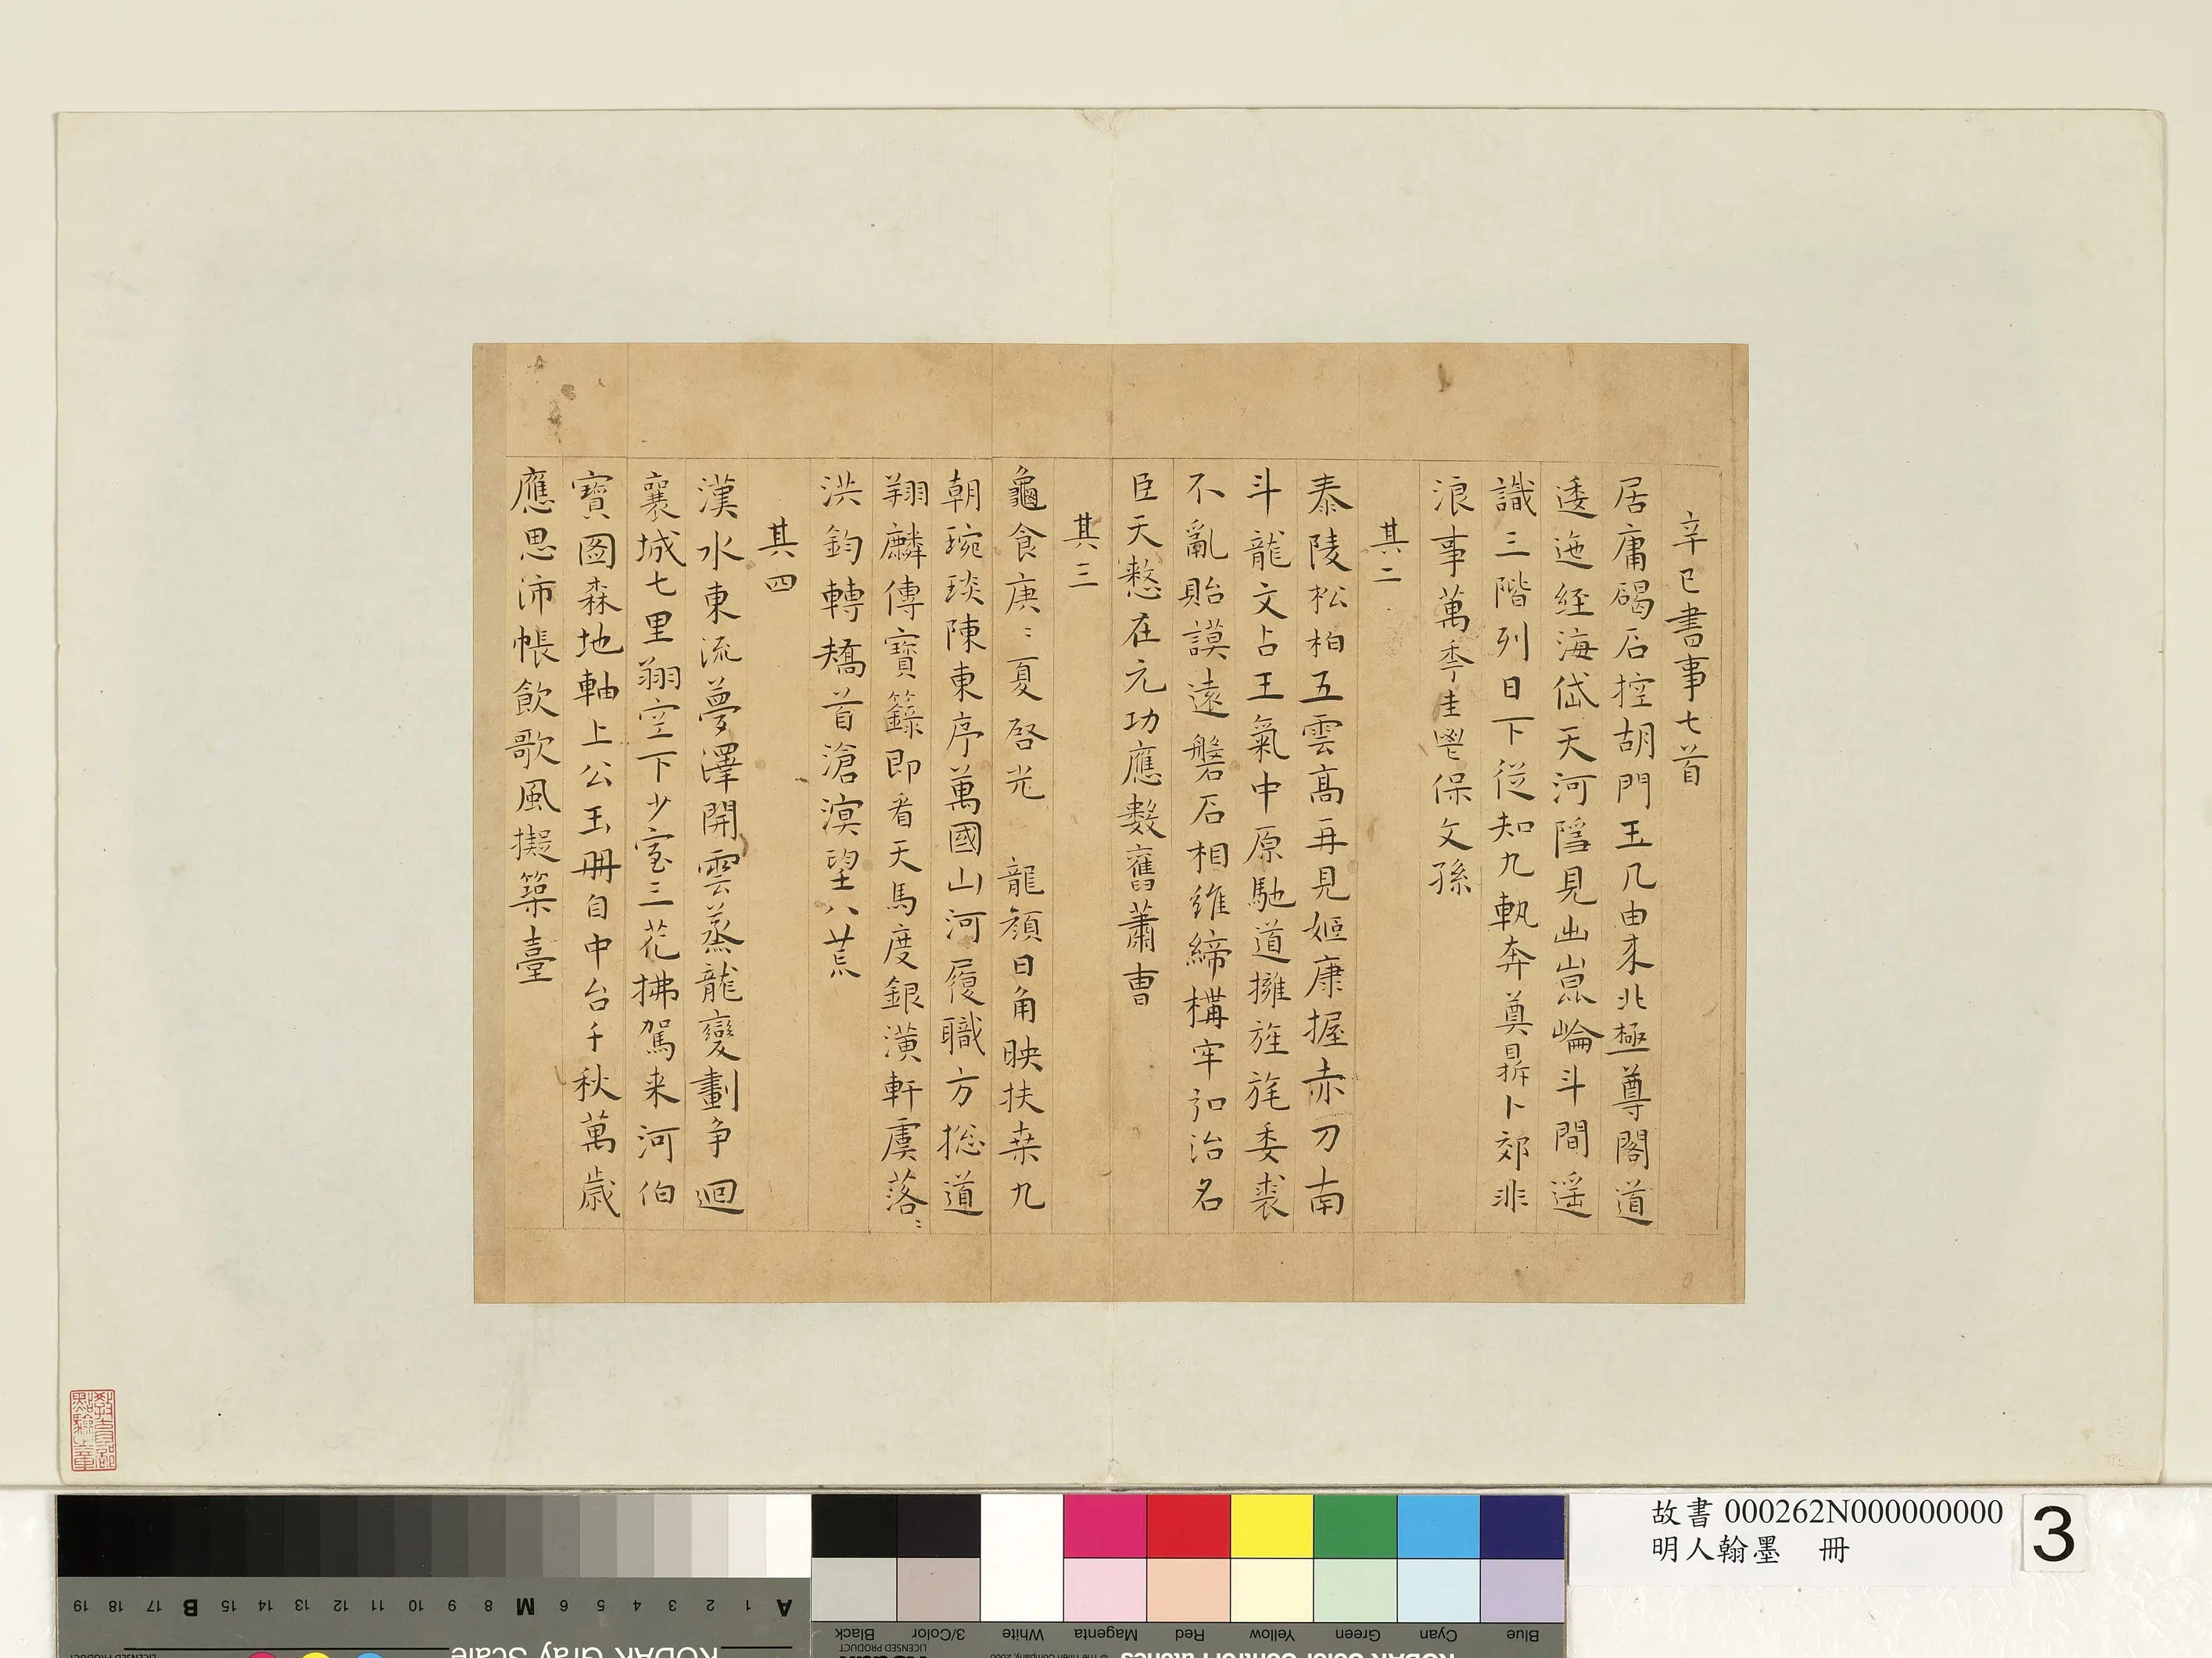 辛巳書事七首
居庸碣石控胡門玉几由來北極尊閣道
逶迤經海岱天河隱見出崑崙斗間遥
識三階列日下從知九軌奔奠鼎拆卜郊非
浪事萬季圭鬯保文孫
其二
泰陵松柏五雲高再見嫗康握赤刀南
斗龍文占王氣中原馳道擁旌旄委裘
不亂貽謨遠磐石相維締構牢詔治名
臣天憖在元功應數舊蕭曹
其三
龜食庚〻夏啓光 龍顏日角映扶桒九
朝琬琰陳東序萬國山河履職方捴道
翔麟傳寶籙即看天馬度銀潢軒虞落〻
洪鈞轉矯首滄溟望八荒
其四
漢水東流夢澤開雲蒸龍變劃争迴
襄城七里翔空下少室三花拂駕来河伯
寶圖森地軸上公玉冊自中台千秋萬歲
應思沛帳飲歌風擬築臺
教育部
點驗之章
故書 000262N000000000
明人翰墨 冊
3
A 1 2 3 4 5 6 M 8 9 10 11 12 13 14 15 B 17 18 19
KODAK Gray Scale
Blue Cyan Green Yellow Red Magenta White 3/Color Black
LICENSED PRODUCT
© The Tiffen Company, 2000
KODAK Color Control Patches